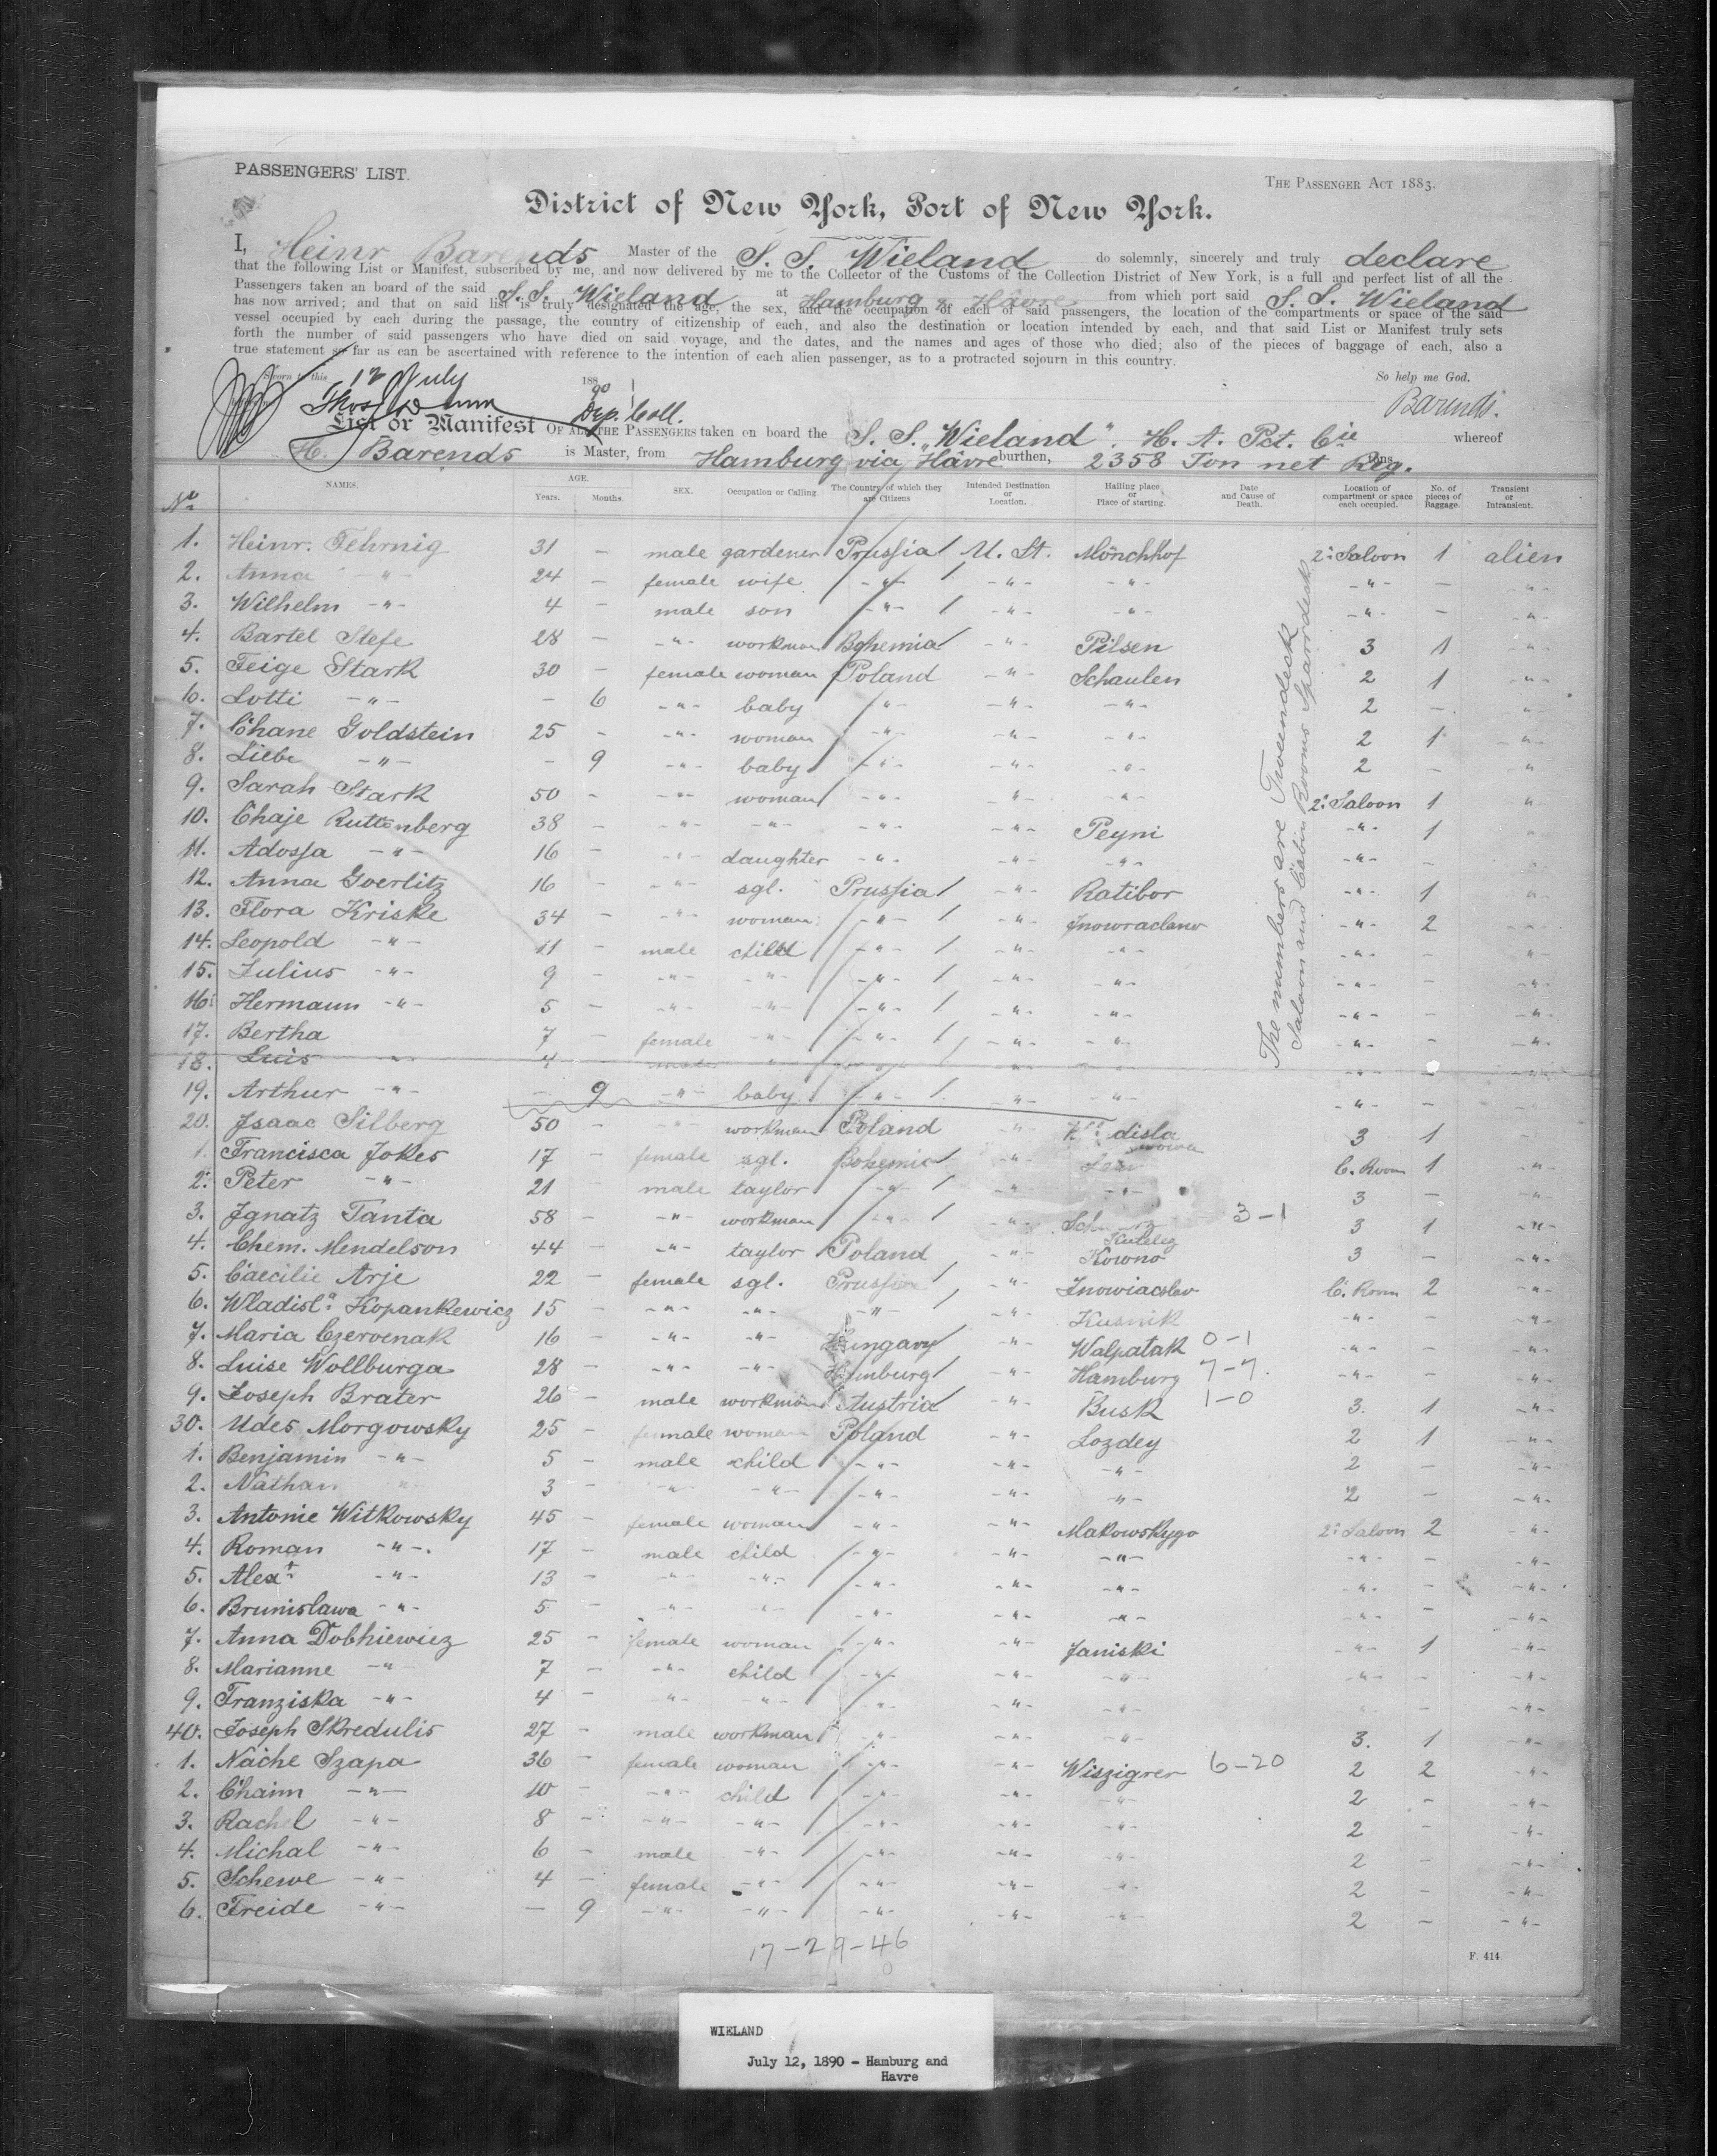 PASSENGERS' LIST.
THE PASSENGER ACT 1883.
District of New York, Port of New York.
I, Heinr Barends Master of the S. S. Wieland do solemnly, sincerely and truly declare
that the following List or Manifest, subscribed by me, and now delivered by me to the Collector of the Customs of the Collection District of New York, is a full and perfect list of all the
Passengers taken an board of the said S. S. Wieland at Hamburg & Hâvre from which port said S. S. Wieland
has now arrived; and that on said list is truly designated the age, the sex, and the occupation of each of said passengers, the location of the compartments or space of the said
vessel occupied by each during the passage, the country of citizenship of each, and also the destination or location intended by each, and that said List or Manifest truly sets
forth the number of said passengers who have died on said voyage, and the dates, and the names and ages of those who died; also of the pieces of baggage of each, also a
true statement so far as can be ascertained with reference to the intention of each alien passenger, as to a protracted sojourn in this country.
Sworn to this 12 July 1890 So help me God.
Thos Dunn Dep. Coll. Barends.
List or Manifest OF ALL THE PASSENGERS taken on board the S. S. "Wieland". H. A. Pct. Cie whereof
H. Barends is Master, from Hamburg via Hâvre burthen, 2358 Ton net Reg. Tons
No NAMES. AGE. Years. Months. SEX. Occupation or Calling. The Country of which they are Citizens Intended Destination or Location. Hailing place or Place of starting. Date and Cause of Death. Location of compartment or space each occupied. No. of pieces of Baggage. Transient or Intransient.
The numbers are Tweendeck
Saloon and Cabin Rooms Spardeck
1. Heinr. Fehrnig 31 - male gardener Prussia U. St. Mönchhof 2: Saloon 1 alien
2. Anna -"- 24 - female wife -"- -"- -"- -"- - -"-
3. Wilhelm -"- 4 - male son -"- -"- -"- -"- - -"-
4. Bartel Stefe 28 - -"- workman Bohemia -"- Pilsen 3 1 -"-
5. Feige Stark 30 - female woman Poland -"- Schaulen 2 1 -"-
6. Lotti -"- - 6 -"- baby -"- -"- -"- 2 - -"-
7. Chane Goldstein 25 - -"- woman -"- -"- -"- 2 1 -"-
8. Liebe -"- - 9 -"- baby -"- -"- -"- 2 - "
9. Sarah Stark 50 - -"- woman -"- -"- -"- 2: Saloon 1 "
10. Chaje Ruttenberg 38 - -"- -"- -"- -"- Peyni -"- 1 "
11. Adossa -"- 16 - -"- daughter -"- -"- -"- -"- - "
12. Anna Goerlitz 16 - -"- sgl. Prussia -"- Ratibor -"- 1 "
13. Flora Kriske 34 - -"- woman -"- -"- Inowraclaw -"- 2 -"-
14. Leopold -"- 11 - male child -"- -"- -"- -"- - -"-
15. Julius -"- 9 - -"- -"- -"- -"- -"- -"- - -"-
16. Hermann -"- 5 - -"- -"- -"- -"- -"- -"- - -"-
17. Bertha 7 - female -"- -"- -"- -"- -"- - -"-
18. Luis -"- 4 -"- - -"-
19. Arthur -"- - 9 -"- baby -"- " -"- -"- -
20. Isaac Silberg 50 - -"- workman Poland -"- 3 1 -"-
1. Francisca Jokes 17 - female sgl. Bohemia -"- C. Room 1 -"-
2. Peter -"- 21 male taylor -"- -"- -"- 3 - -"-
3. Ignatz Tanta 58 - -"- workman -"- -"- 3-1 3 1 -"-
4. Chem. Mendelson 44 - -"- taylor Poland -"- Kowno 3 - -"-
5. Caecilie Arje 22 - female sgl. Prussia -"- Inowiaclav C. Room 2 -"-
6. Wladisla Kopankewicz 15 - -"- -"- -"- Kusnik -"- - -"-
7. Maria Czervenak 16 - -"- -"- Hungary -"- Walpatak 0-1 -"- - -"-
8. Luise Wollburga 28 - -"- -"- Hamburg -"- Hamburg 7-7. -"- - -"-
9. Joseph Brater 26 - male workman Austria -"- Busk 1-0 3. 1 -"-
30. Udes Morgowsky 25 - female woman Poland -"- Lozdey 2 1 -"-
1. Benjamin -"- 5 - male child -"- -"- -"- 2 - -"-
2. Nathan " 3 - -"- -"- -"- -"- -"- 2 - -"-
3. Antonie Witkowsky 45 - female woman -"- -"- Makowskygo 2: Saloon 2 -"-
4. Roman -"-. 17 - male child -"- -"- -"- -"- - -"-
5. Alexr -"- 13 - -"- -"- -"- -"- -"- -"- - -"-
6. Brunislawa -"- 5 - -"- -"- -"- -"- -"- -"- - -"-
7. Anna Dobhiewicz 25 - female woman -"- -"- Janiski -"- 1 -"-
8. Marianne -"- 7 - -"- child -"- -"- -"- -"- - -"-
9. Franziska -"- 4 - -"- -"- -"- -"- -"- - -"-
40. Joseph Skredulis 27 - male workman -"- -"- -"- 3. 1 -"-
1. Nache Szapa 36 - female woman -"- -"- Wiszigrer 6-20 2 2 -"-
2. Chaim -"- 10 - -"- child -"- -"- -"- 2 - -"-
3. Rachel -"- 8 - -"- -"- -"- -"- -"- 2 - -"-
4. Michal -"- 6 - male -"- -"- -"- -"- 2 - -"-
5. Schewe -"- 4 - female -"- -"- -"- -"- 2 - -"-
6. Freide -"- - 9 -"- -"- -"- -"- -"- 2 - -"-
17-29-46
F. 414
WIELAND
July 12, 1890 - Hamburg and
Havre